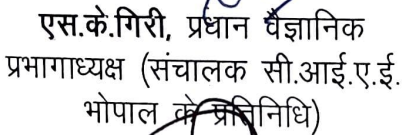 एस.के.गिरी, प्रधान वैज्ञानिक
प्रभागाध्यक्ष (संचालक सी.आई.ए.ई.
भोपाल के प्रतिनिधि)